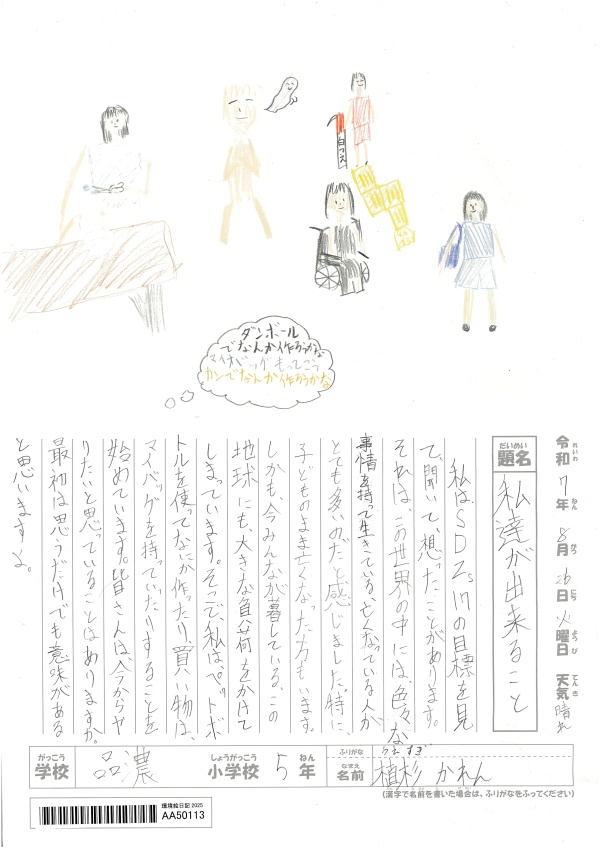 白つえ
ダンボール
でなんか作ろうかな
マイバッグもってこう
カンでなんか作ろうかな
令和7年8月26日火曜日 天気 晴れ
れいわ ねん がつ にち ようび てんき
だいめい
題名
私達が出来ること
私は、SDZsinの目標を見
て、聞いて、想ったことがあります。
それは、この世界の中には、色々な
事情を持って生きている、亡くなっている人が
とても多いのだと感じました。特に、
子どものまま亡くなった方もいます。
しかも今みんなが暮している、この
地球にも、大きな負荷をかけて
しまっています。そこで、私は、ペットボ
トルを使ってなにか作たり、買い物は、
マイバッグを持っていったりすることを
始めています。皆さんは、今からや
りたいと思っていることはありますか。
最初は思うだけでも意味がある
と思いますよ。
がっこう
学校
品濃
しょうがっこう
小学校
5
ねん
年
ふりがな
うえすぎ
なまえ
名前
植杉 かれん
(漢字で名前を書いた場合は、ふりがなをふってください)
環境絵日記 2025
AA50113